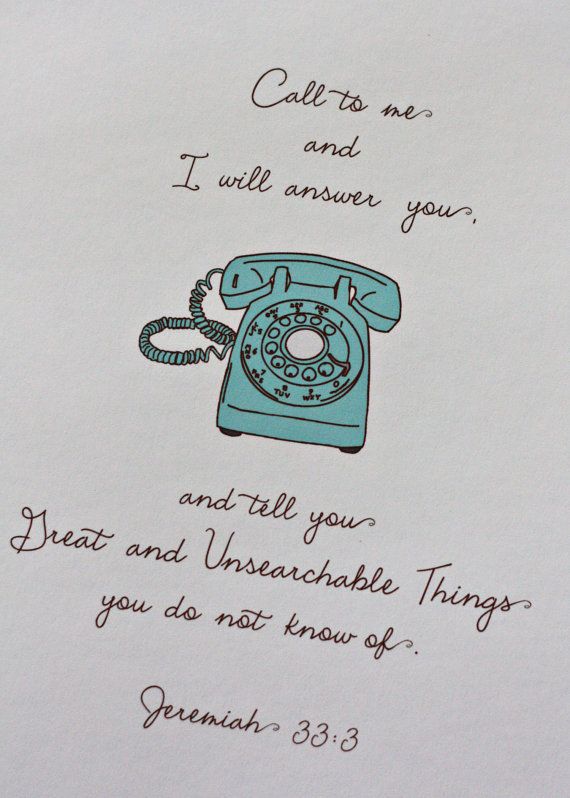 Call to me
and
I will answer you,
1
ABC
2
8
TUV
9
WXY
0
7
6
5
and tell you
Great and Unsearchable Things
you do not know of.
Jeremiah 33:3